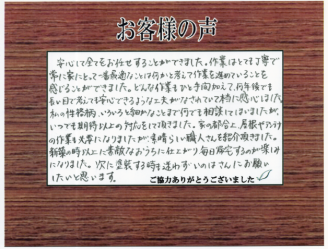 お客様の声
安心して全てをお任せすることができました。作業はとても丁寧で
常に家にとって一番最適なことは何かと考えて作業を進めていることを
感じることができました。どんな作業もひと手間加えて、何年後でも
長い目で考えても安心できるような工夫がなされていて本物に感心しました。
私の性格柄、いろいろと細かなことまで何でも相談してしまいましたが、
いつでも期待以上の対応をして頂きました。家の都合上、屋根やガラス
の作業も大事になりましたが、素晴らしい職人さんを紹介頂きました。
新築の時以上に素敵なおうちに仕上がり毎日帰宅するのが楽しみ
になりました。次に塗装する時も迷わずいのはさんにお願い
したいと思います。
ご協力ありがとうございました